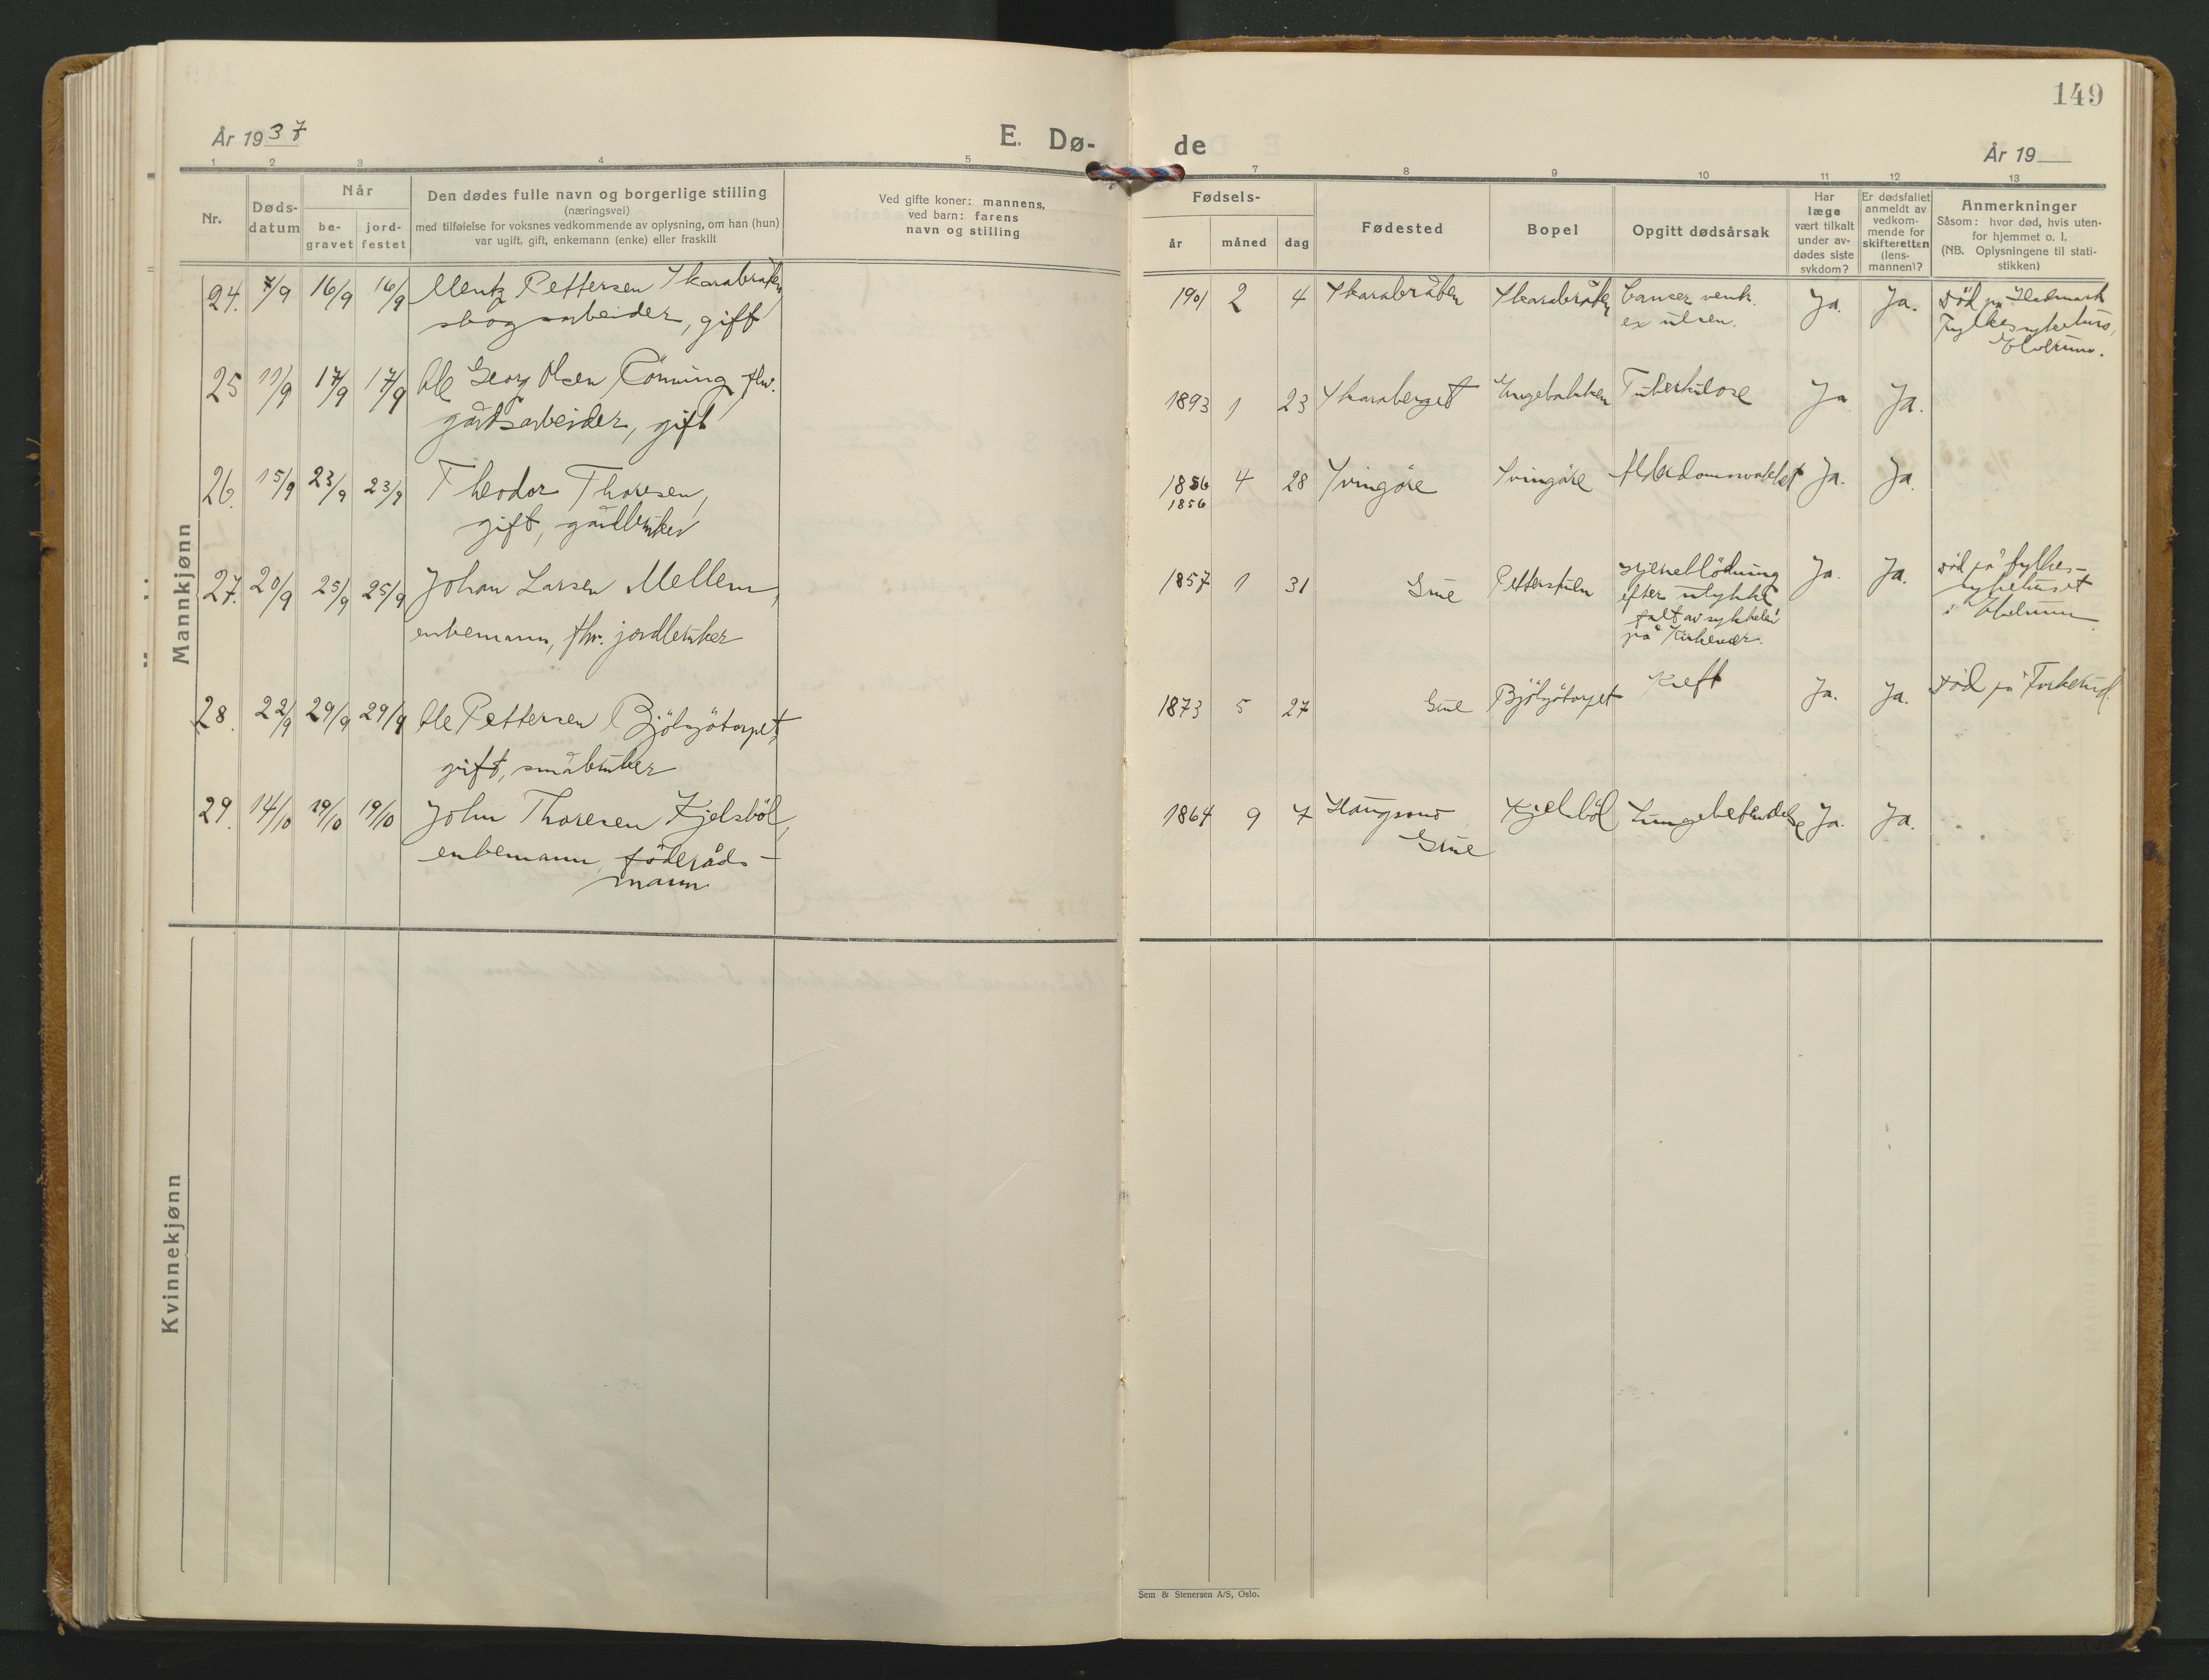 149
År 1937
E. Dø-
de
År 19
1 2 3 4 5 7 8 9 10 11 12 13
Nr.
Døds-
datum
Når
be-
gravet
jord-
festet
Den dødes fulle navn og borgerlige stilling
(næringsvei)
med tilføielse for voksnes vedkommende av oplysning, om han (hun)
var ugift, gift, enkemann (enke) eller fraskilt
Ved gifte koner: mannens,
ved barn: farens
navn og stilling
Fødsels-
år
måned
dag
Fødested
Bopel
Opgitt dødsårsak
Har
læge
vært tilkalt
under av-
dødes siste
sykdom?
Er dødsfallet
anmeldt av
vedkom-
mende for
skifteretten
(lens-
mannen)?
Anmerkninger
Såsom: hvor død, hvis uten-
for hjemmet o. l.
(NB. Oplysningene til stati-
stikken)
Mannkjønn
24. 7/9 16/9 16/9 Mentz Pettersen Skarabråten
skogsarbeider, gift
1901 2 4 Skarabråten Skarabråten Cancer ventr.
Ja. Ja. död på Hedmark
Fylkessykehus,
Elverum.
25 11/9 17/9 17/9 Ole Georg Olsen Rönning fhv.
gårdsarbeider, gift
1893 1 23 Skaraberget Engebakken Tuberkulose Ja Ja.
26. 15/9 23/9 23/9 Theodor Thoresen,
gift, gårdbruker
1856 4 28 Svingöre Svingöre Alderdomsvakhet Ja. Ja.
1856
27. 20/9 25/9 25/9 Johan Larsen Mellem,
enkemann, fhv. jordbruker
1857 1 31 Grue Petterstuen hjerneblödning
efter ulykke
falt av sykkelen
på Kirkenær.
Ja. Ja. död på fylkes-
sykehuset
i Elverum
28. 22/9 29/9 29/9 Ole Pettersen Bjölsjötorpet,
gift, småbruker
1873 5 27 Grue Bjölsjötorpet Kreft Ja. Ja. död på Forkerud.
29. 14/10 19/10 19/10 John Thoresen Kjelsböl,
enkemann, föderåds-
mann
1864 9 7 Haugsmo
Grue
Kjelsböl Lungebetendelse Ja. Ja.
Kvinnekjønn
Sem & Stenersen A/S, Oslo.